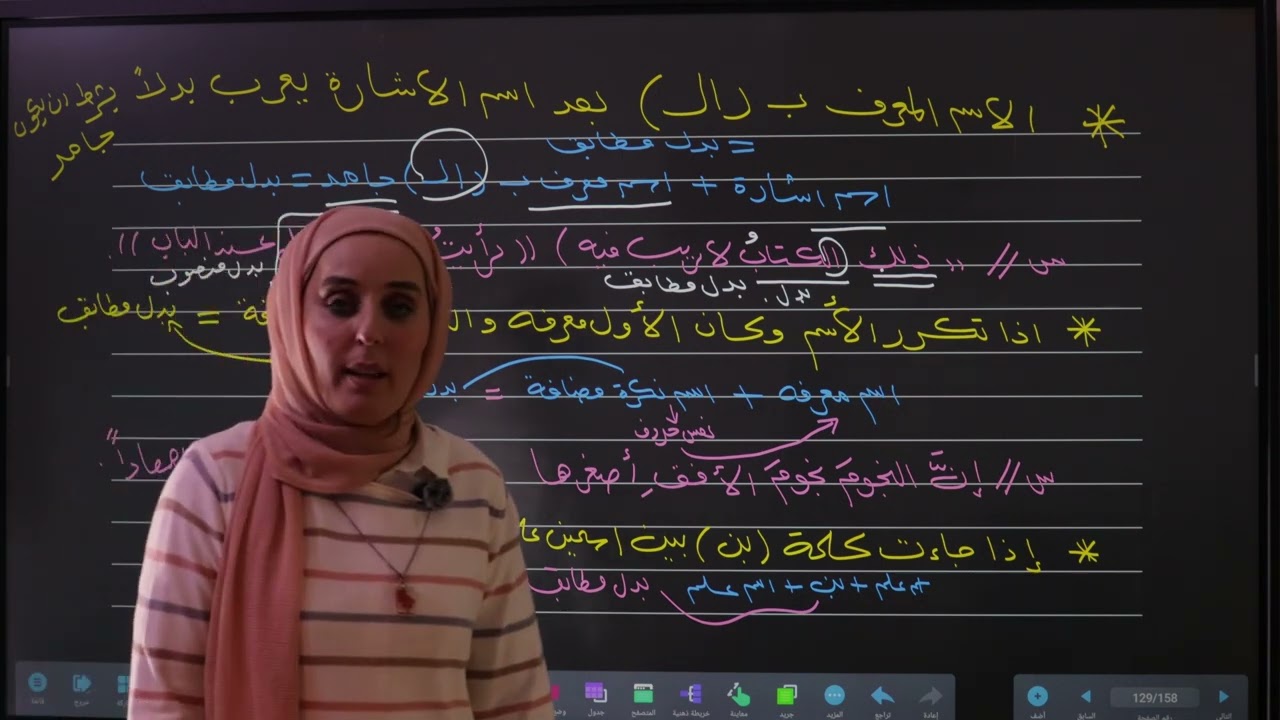 * الاسم المعرف ب (ال) بعد اسم الاشارة يعرب بدلاً بشرط ان يكون
جامد
= بدل مطابق
اسم اشارة + اسم معرف ب (ال) جامد = بدل مطابق
س // (( ذلك الكتابُ لا ريب فيه )) (( رأيتُ عند الباب )).
بدل. بدل مطابق
بدل منصوب
* اذا تكرر الأسم وكان الأول معرفه = بدل مطابق
اسم معرفه + اسم نكرة مضافة = بدل
نفس حروف
س // إنَّ النجومَ نجومَ الأفقِ أصغرها
* إذا جاءت كلمة (بن) بين اسمين
علم + بن + اسم علم بدل مطابق
قائمة
خروج
جدول
المتصفح
خريطة ذهنية
معاينة
جديد
المزيد
تراجع
إعادة
أضف
السابق
129/158
رقم الصفحة
التالي